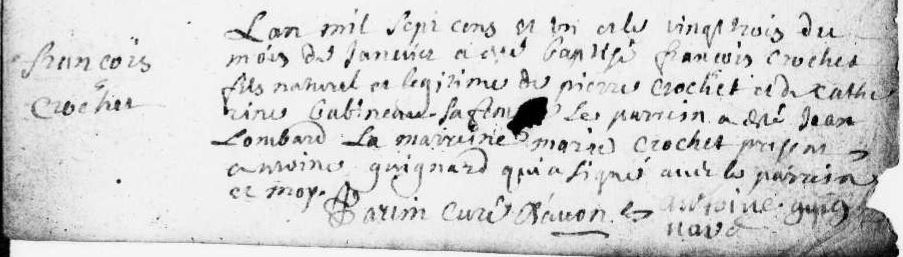 françois
Crochet
L'an mil sept cens et un et le vingt trois du
mois de Janvier a esté baptisé françois Crochet
fils naturel et legitime de pierre Crochet et de Cathe
rine Gabineau sa fem le parrein a esté Jean
Lombard La marreine marie Crochet present
antoine guignard qui a signé avec le parrein
et moy.
curé
antoine guig
nard